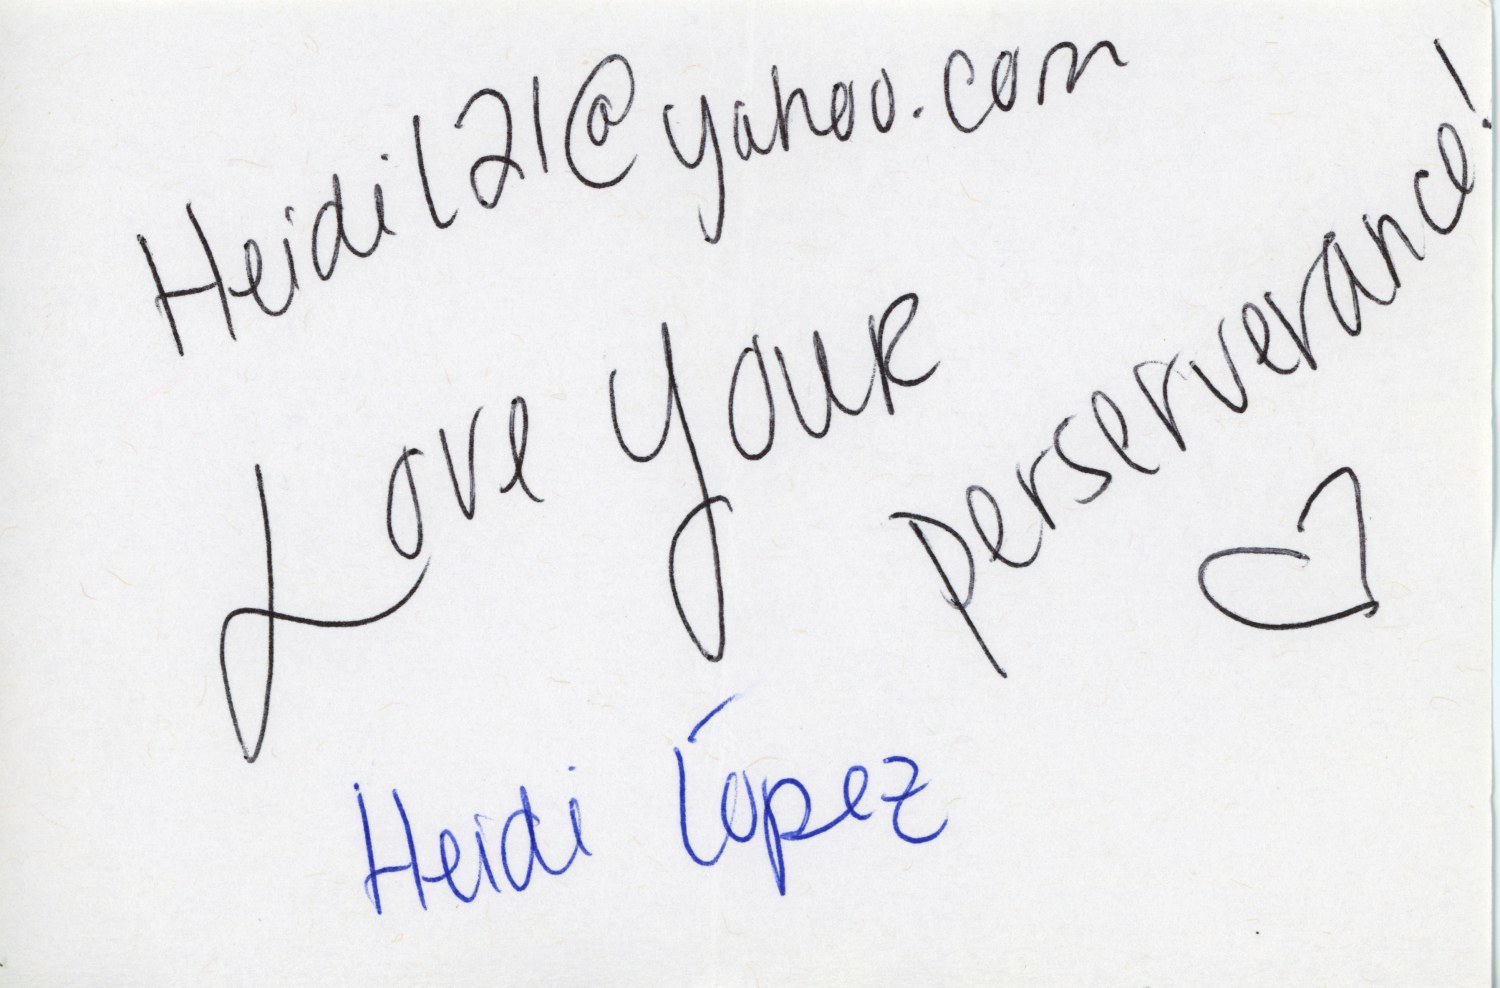 Heidi121@yahoo.com
Love your
perserverance!
Heidi López